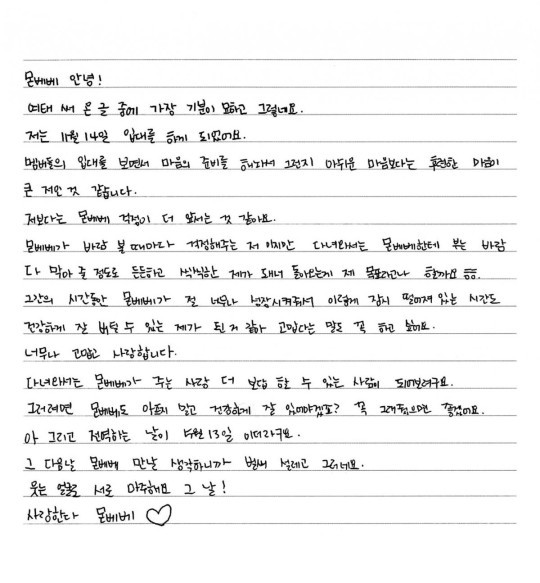 몬베베 안녕!
여태 써 온 글 중에 가장 기분이 묘하고 그렇네요.
저는 11월 14일 입대를 하게 되었어요.
멤버들의 입대를 보면서 마음의 준비를 해놔서 그런지 아쉬운 마음보다는 후련한 마음이
큰 저인 것 같습니다.
저보다는 몬베베 걱정이 더 앞서는 것 같아요.
몬베베가 바람 불 때마다 걱정해주는 저 이지만 다녀와서는 몬베베한테 부는 바람
다 막아 줄 정도로 든든하고 씩씩한 제가 돼서 돌아오는게 제 목표라고나 할까요 ㅎㅎ.
그간의 시간동안 몬베베가 절 너무나 성장시켜줘서 이렇게 잠시 떨어져 있는 시간도
건강하게 잘 버틸 수 있는 제가 된 거 같아 고맙다는 말도 꼭 하고 싶어요.
너무나 고맙고 사랑합니다.
다녀와서는 몬베베가 주는 사랑 더 보답 할 수 있는 사람이 되어보려구요.
그러려면 몬베베도 아프지 않고 건강하게 잘 있어야겠죠? 꼭 그래줬으면 좋겠어요.
아 그리고 전역하는 날이 5월 13일 이더라구요.
그 다음날 몬베베 만날 생각하니까 벌써 설레고 그러네요.
웃는 얼굴로 서로 마주해요 그 날!
사랑한다 몬베베 ♡